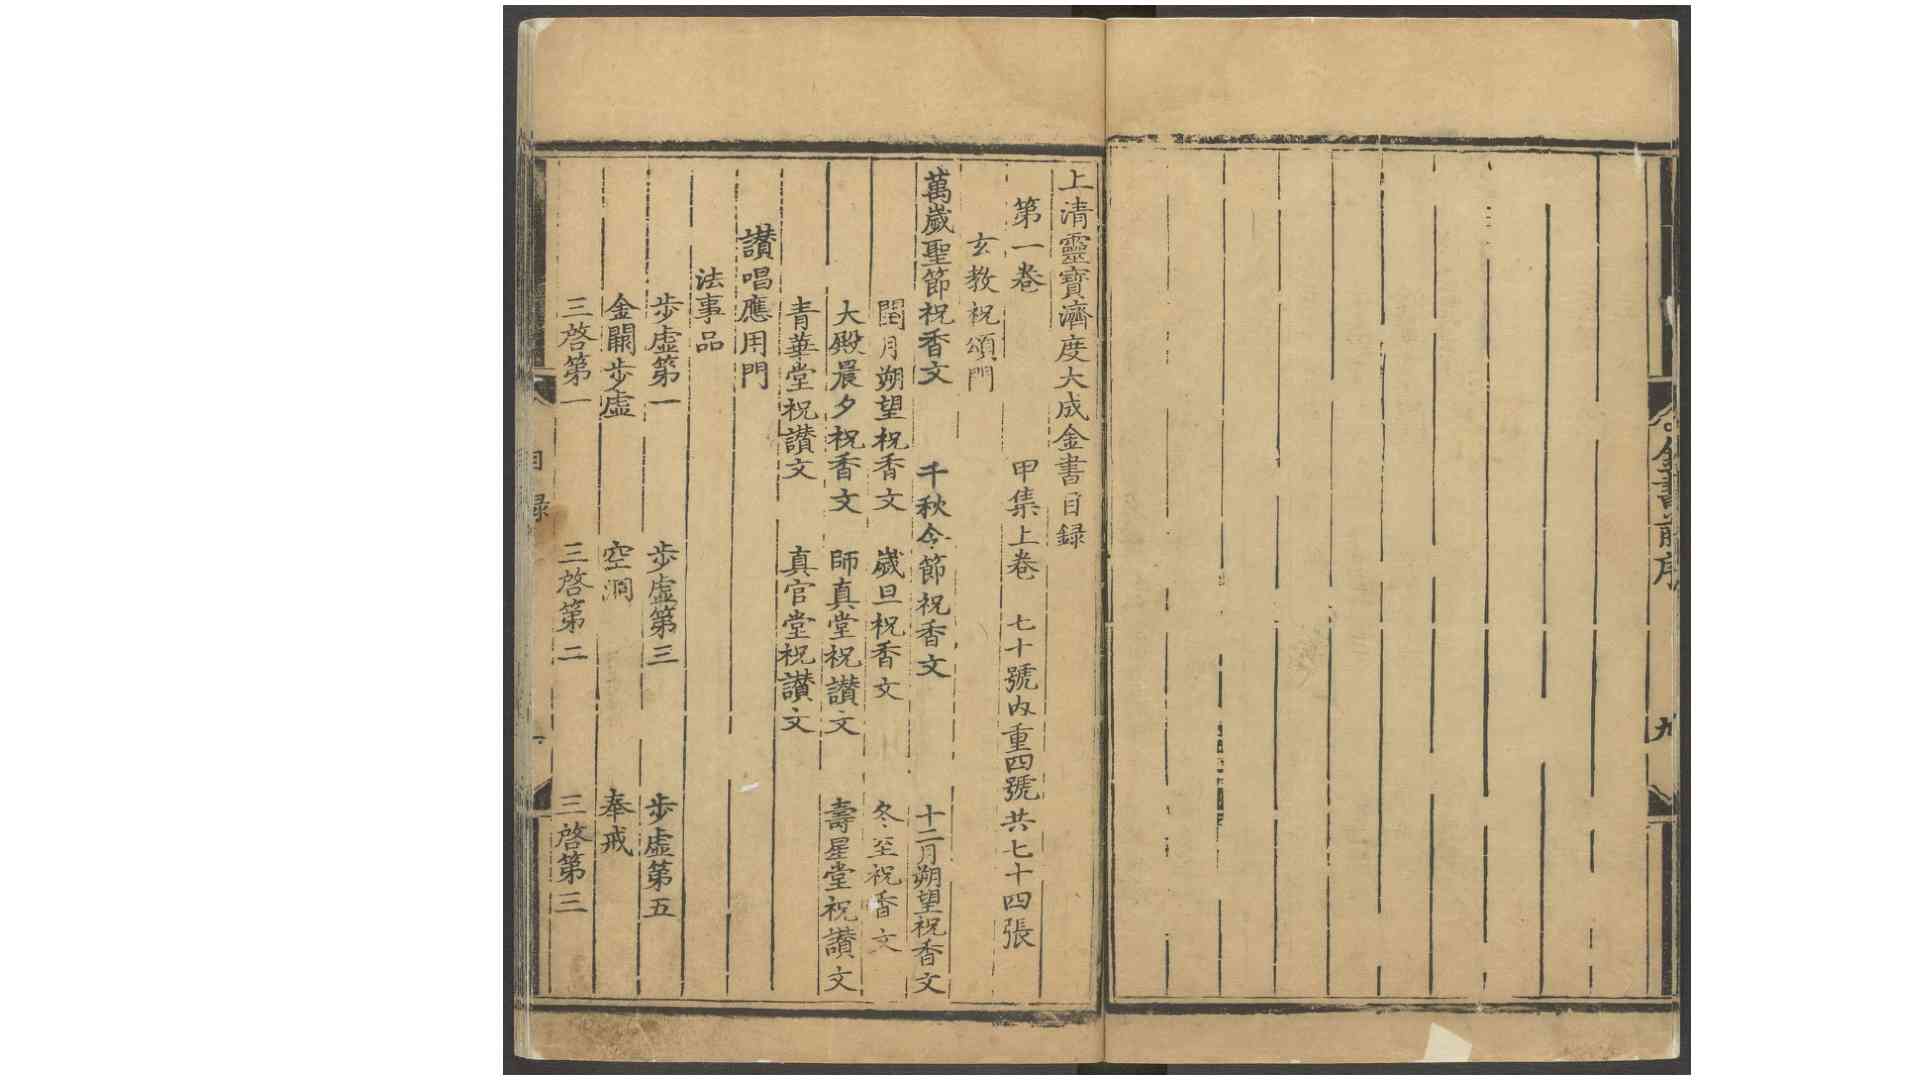 金書前序
九
上清靈寶濟度大成金書目録
第一卷 甲集上卷 七十號内重四號共七十四張
玄教祝頌門
萬歲聖節祝香文 千秋令節祝香文 十二月朔望祝香文
閏月朔望祝香文 歲旦祝香文 冬至祝香文
大殿晨夕祝香文 師真堂祝讃文 壽星堂祝讃文
青華堂祝讃文 真官堂祝讃文
讃唱應用門
法事品
步虛第一 步虛第三 步虛第五
金闕步虛 空洞 奉戒
三啓第一 三啓第二 三啓第三
目録